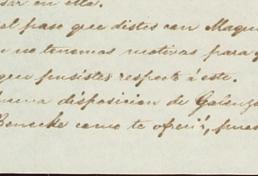 sar en ella.
el paso que distes con Maqui
no tenemos motivos para q
que pensistes respecto á este.
buena disposicion de
como te ofreci, pues